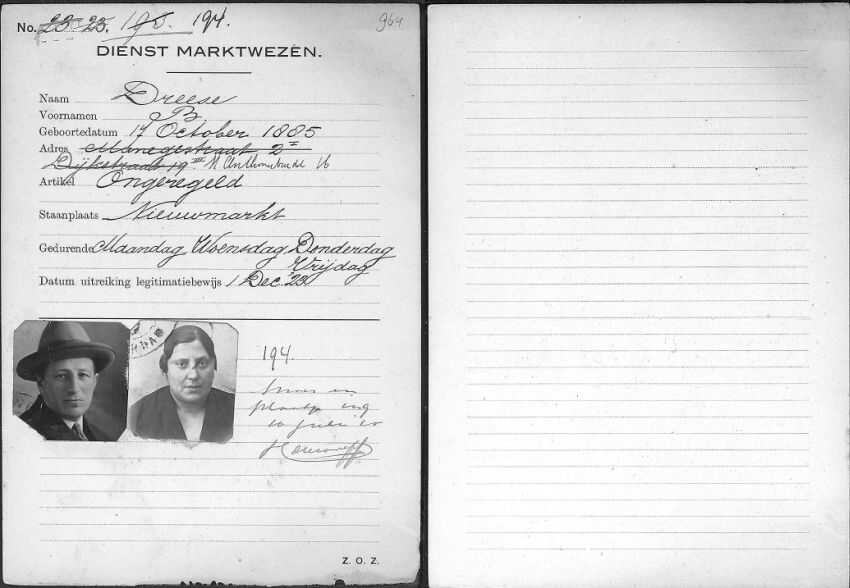 No. 23. 23. 195. 194.
964
DIENST MARKTWEZEN.
Naam Dreese
Voornamen B
Geboortedatum 17 October 1885
Adres Manegestraat 2
Dijkstraat 19 III 16
Artikel Ongeregeld
Staanplaats Nieuwmarkt
Gedurende Maandag Woensdag Donderdag
Vrijdag
Datum uitreiking legitimatiebewijs 1 Dec. '23
194.
Z. O. Z.